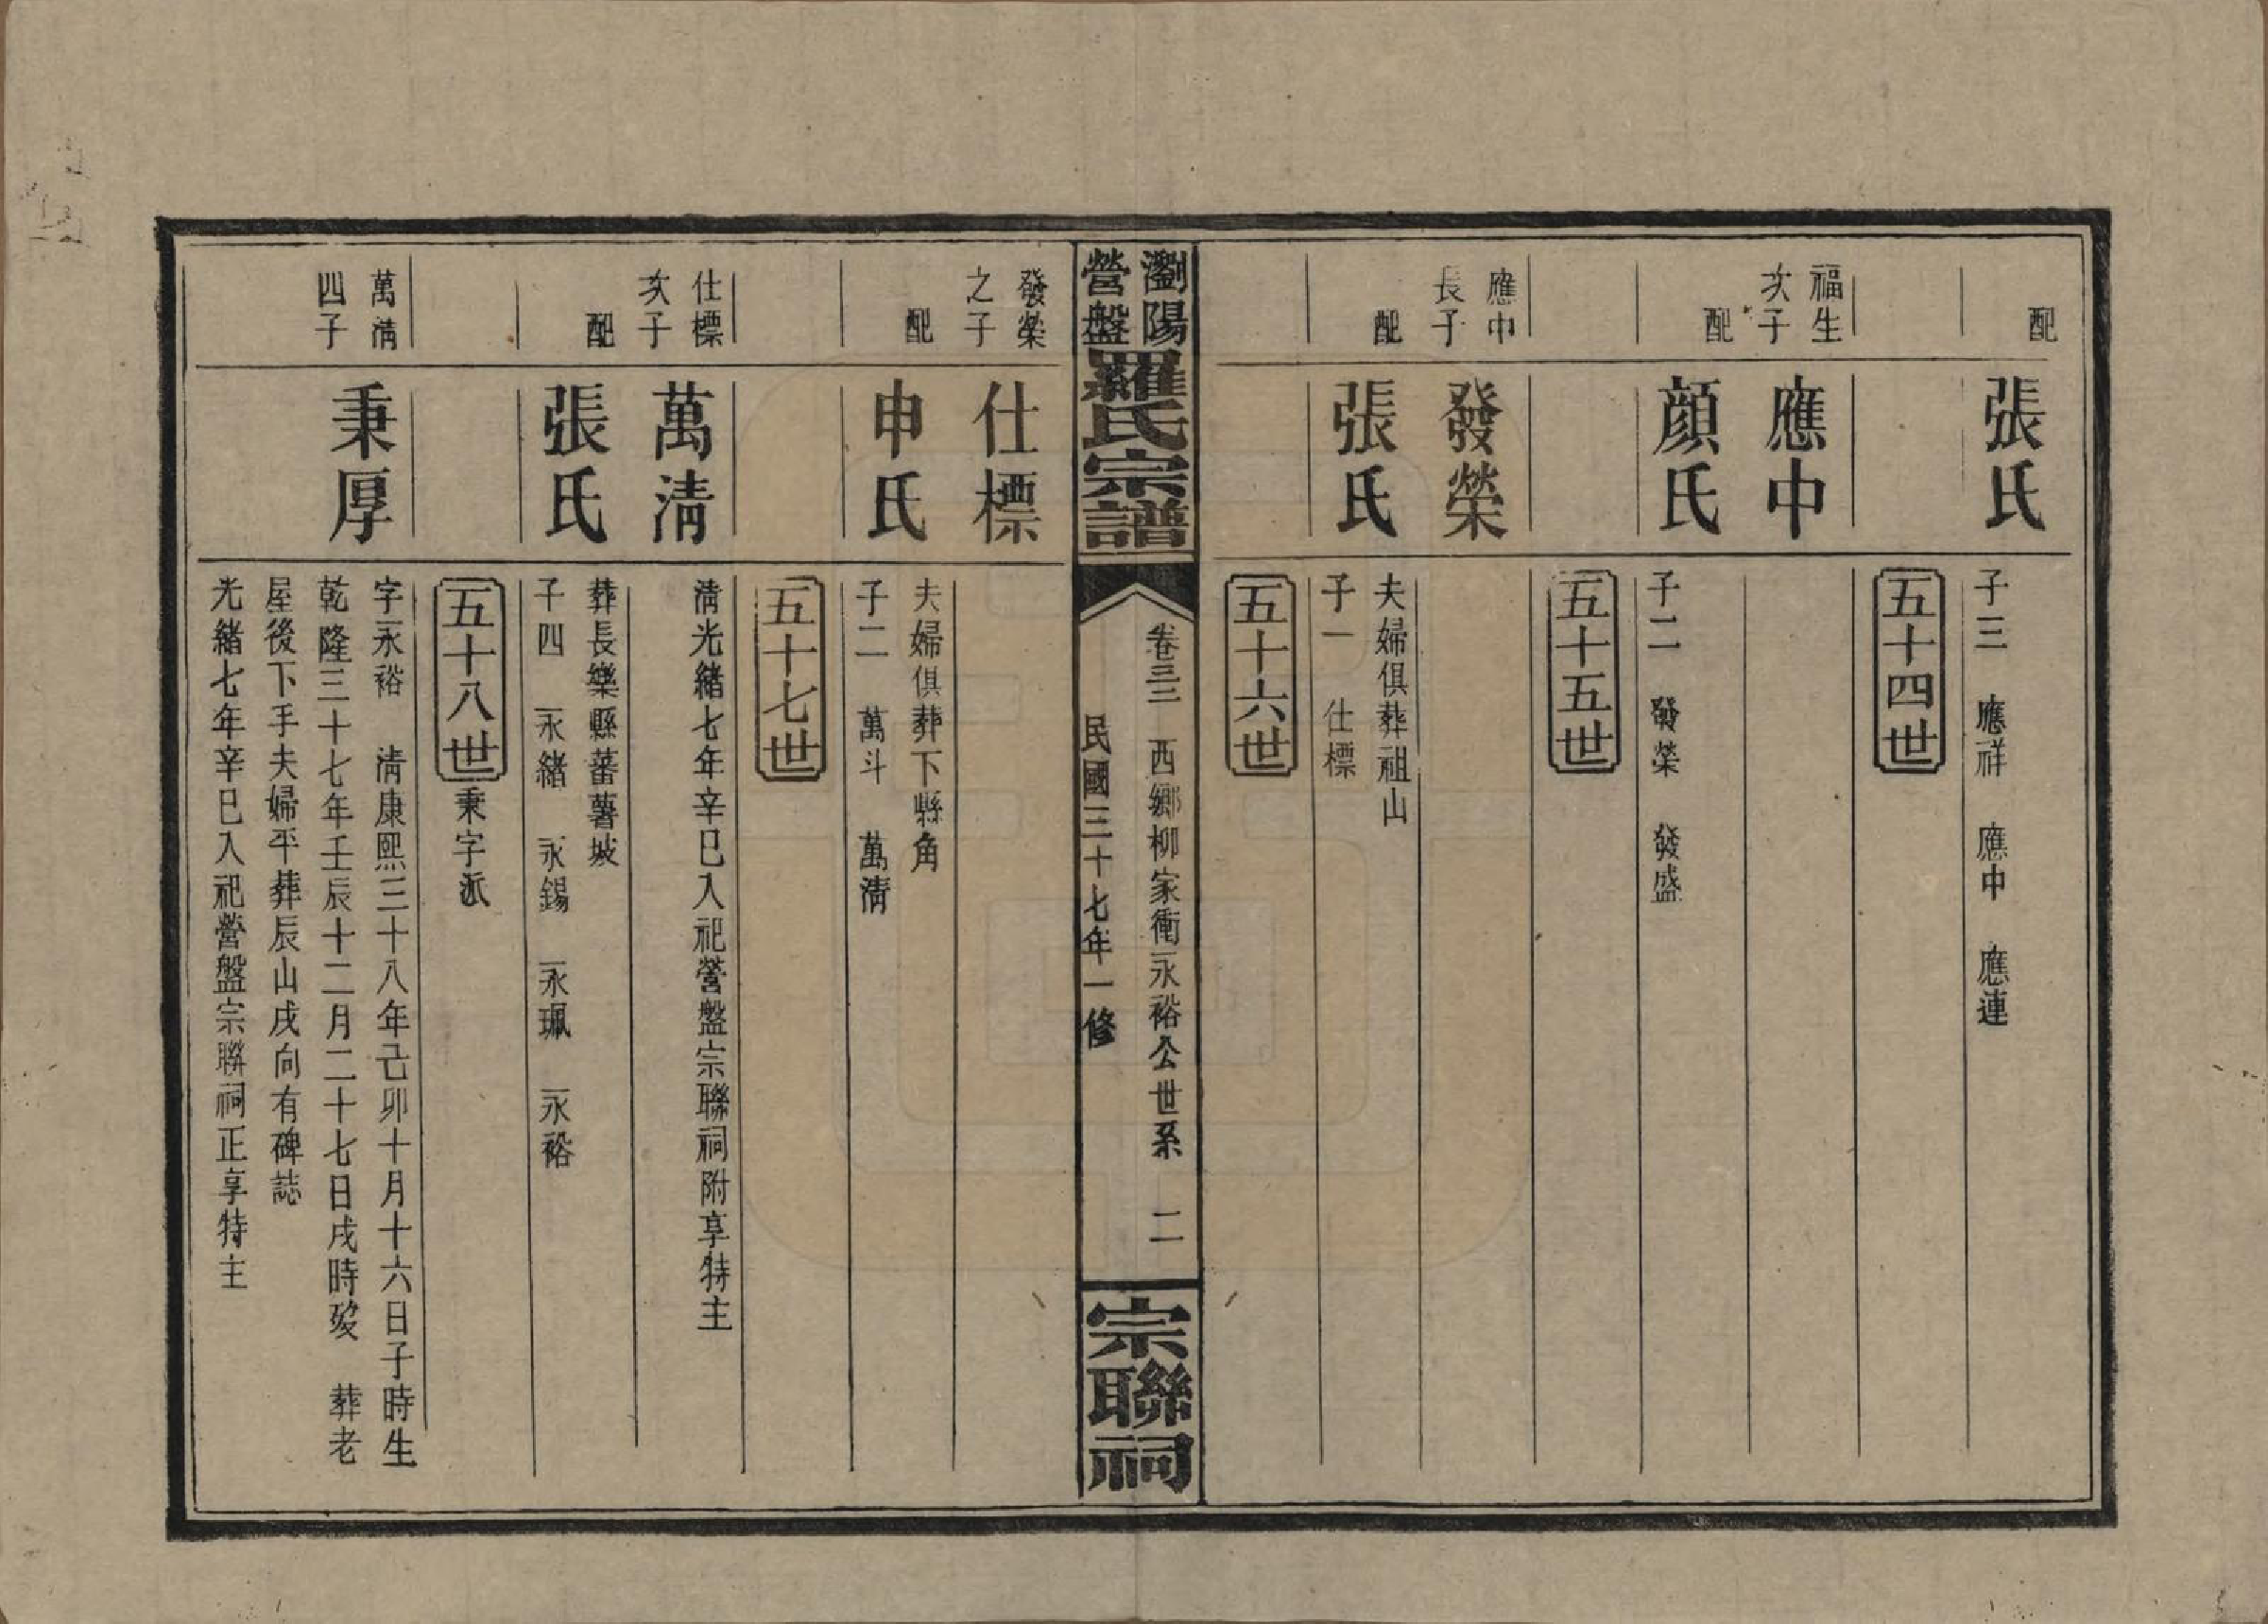 配
張氏
子三　應祥　應中　應連
五十四世
福生
次子
應中
配
顏氏
子二　發榮　發盛
五十五世
應中
長子
發榮
夫婦俱葬祖山
配
張氏
子一　仕標
五十六世
瀏陽
營盤
羅氏宗譜
卷三三　西鄉柳家衝永裕公世系　二
民國三十七年一修
宗聯祠
發榮
之子
仕標
夫婦俱葬下縣角
配
申氏
子二　萬斗　萬淸
五十七世
仕標
次子
萬淸
淸光緒七年辛巳入祀營盤宗聯祠附享特主
葬長樂縣蕃薯坡
配
張氏
子四　永緒　永錫　永珮　永裕
五十八世秉字派
萬淸
四子
秉厚
字永裕　淸康熙三十八年己卯十月十六日子時生
乾隆三十七年壬辰十二月二十七日戌時歿　葬老
屋後下手夫婦平葬辰山戌向有碑誌
光緒七年辛巳入祀營盤宗聯祠正享特主